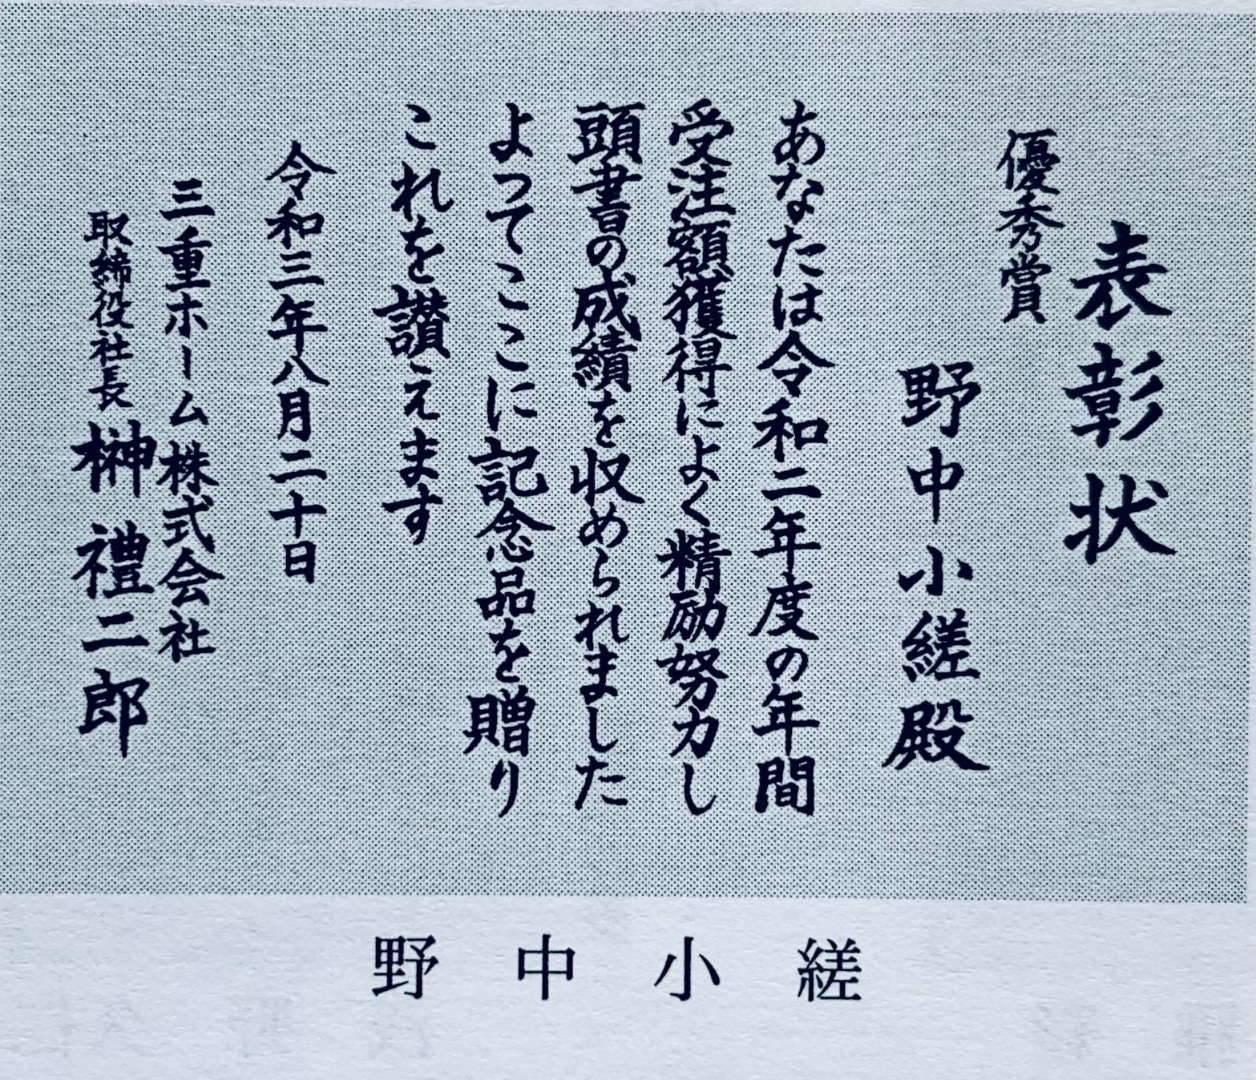 表彰状
優秀賞
野中小縒殿
あなたは令和二年度の年間
受注額獲得によく精励努力し
頭書の成績を収められました
よってここに記念品を贈り
これを讃えます
令和三年八月二十日
三重ホーム株式会社
取締役社長 榊 禮二郎
野中小縒